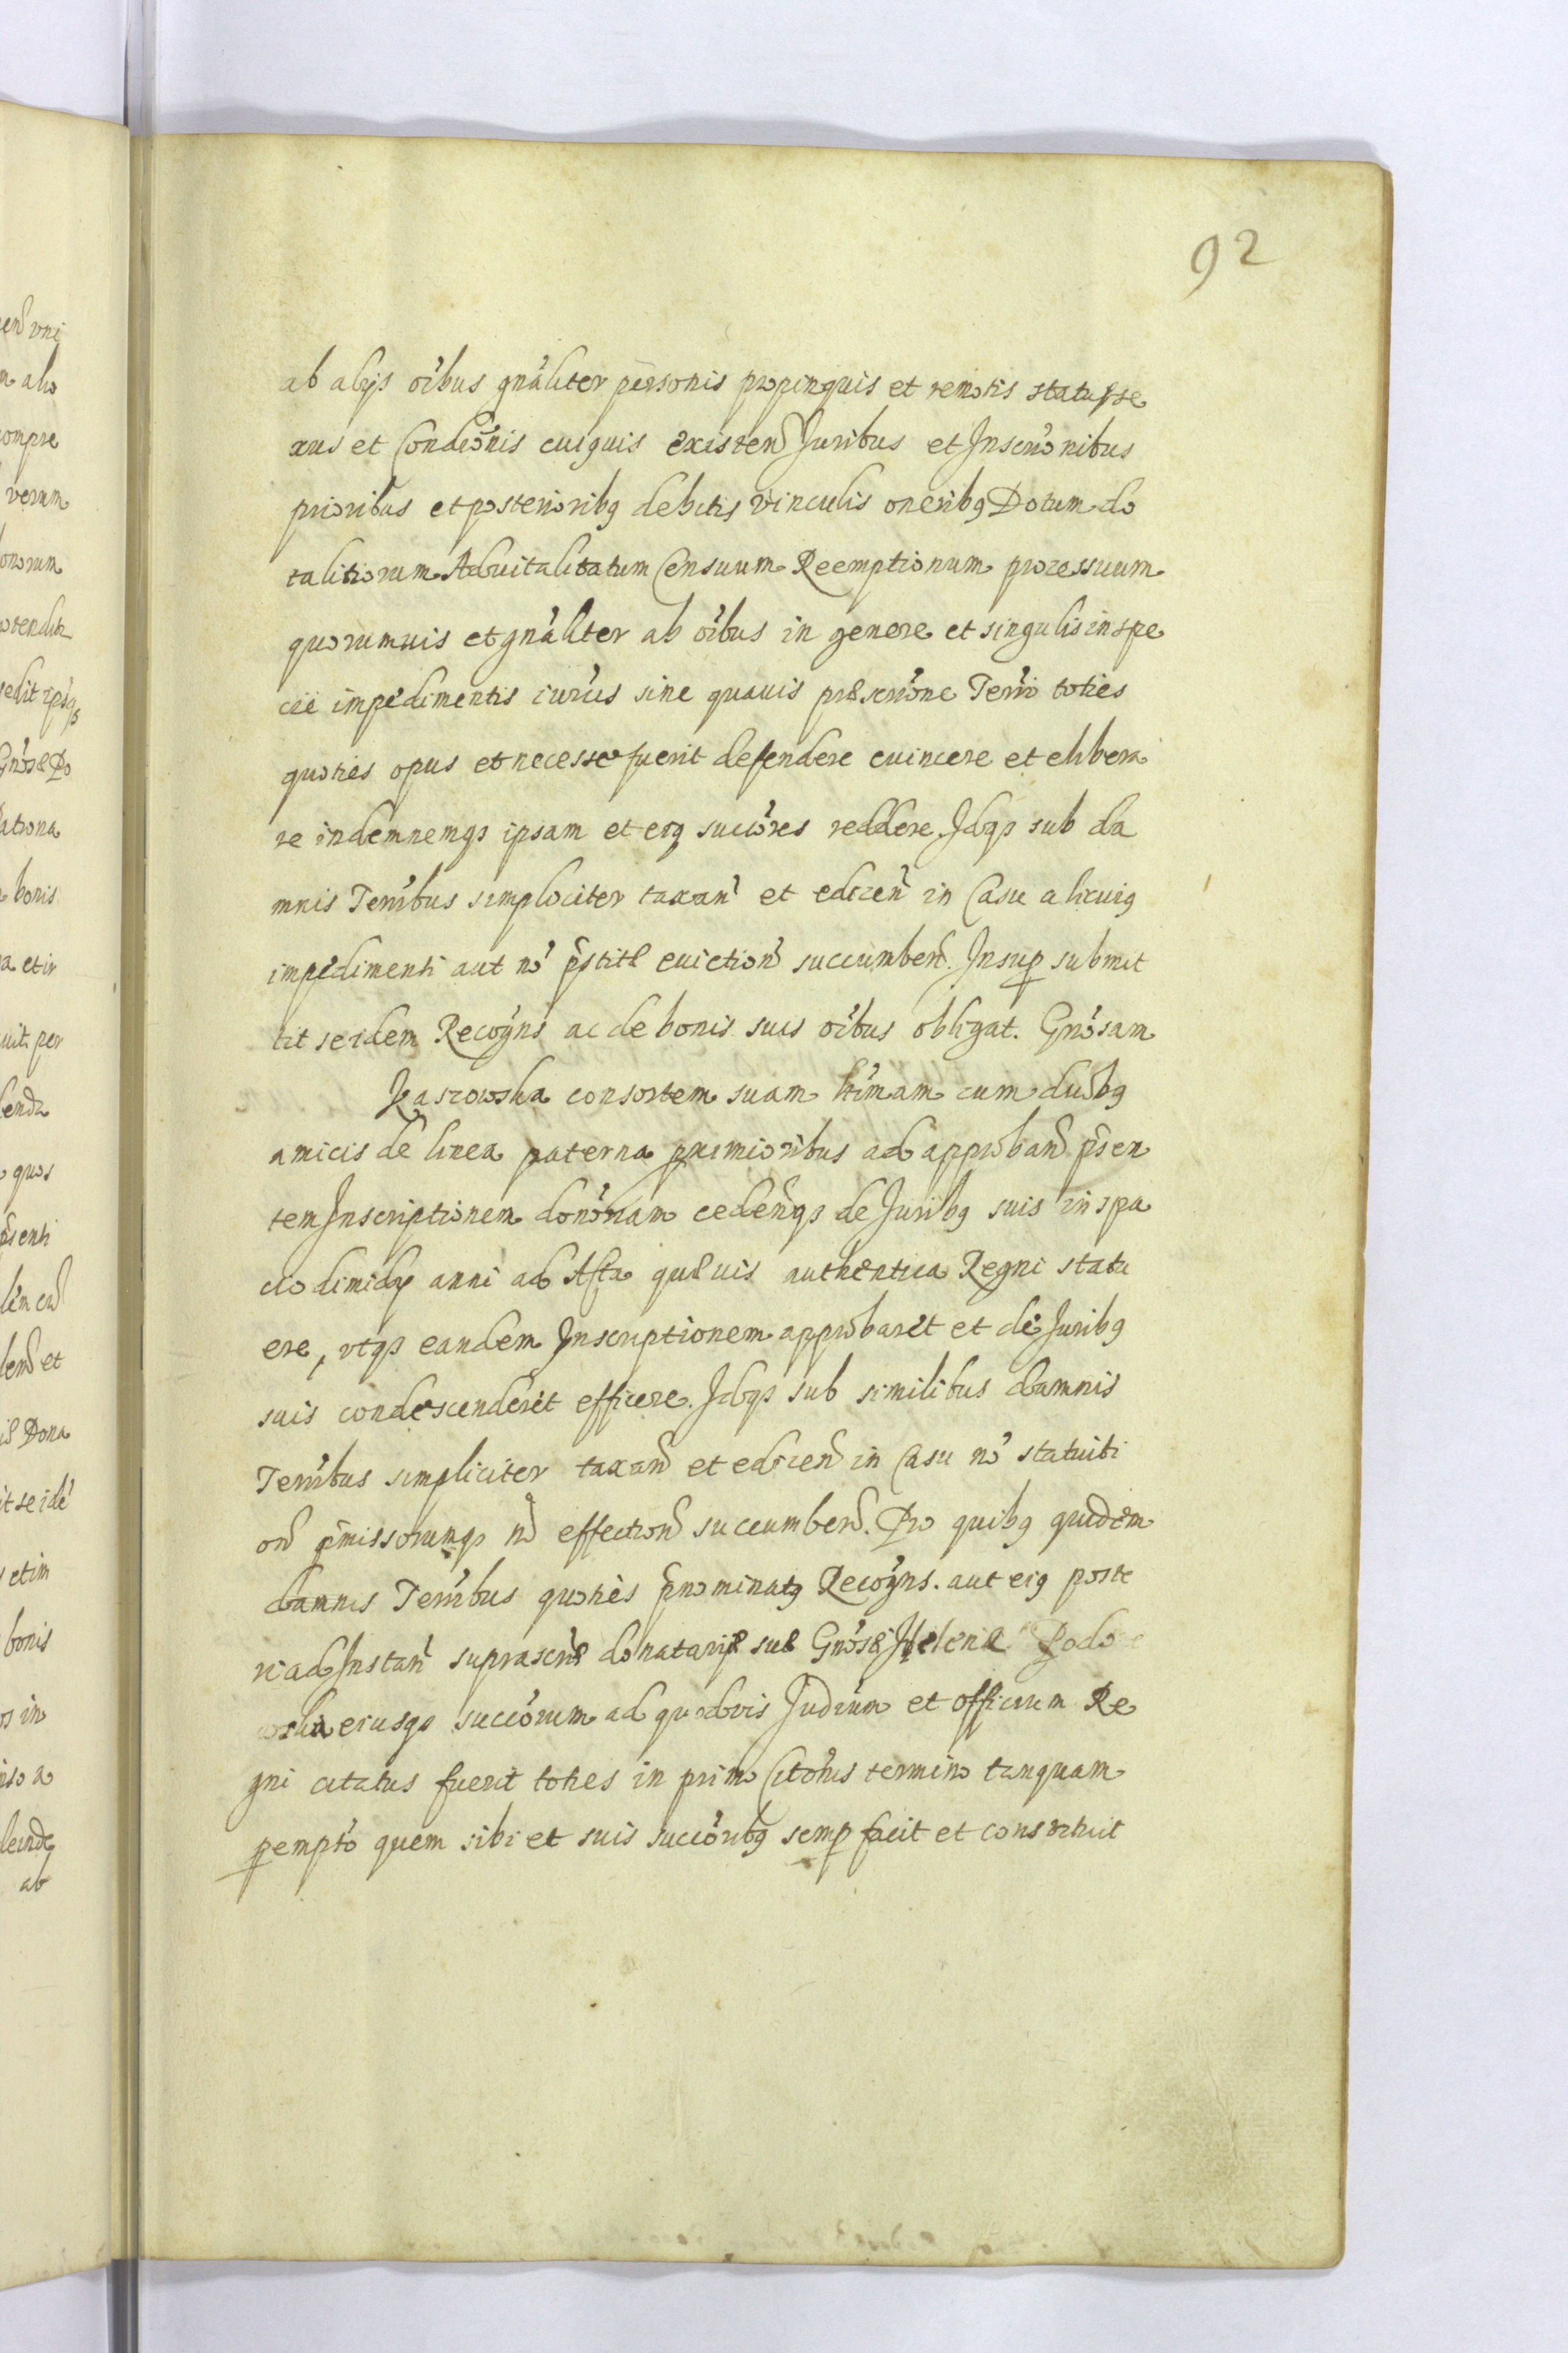 92
ab alijs oi'bus gn'aliter personis propinquis et remotis status se
xus et Condiõnis cuiquis existen Juribus et Inscrio'nibus
prioribus et posteriorib9 debitis vinculis onerib9 Dotum do
talitiorum Aduitalitatum Censuum Reemptionum processuum
quorumuis et gn'aliter ab oi'bus in genere et singulis in spe
cie impedimentis iuri'us sine quauis præscrio'ne Terri' toties
quoties opus et necesse fuerit defendere euincere et elibera
re indemnemq3 ipsam et ei9 succo'res reddere. Idq3 sub da
mnis Terri'bus simpliciter taxan' et edicen' in Casu alicui9
impedimenti aut no' p̃stitæ euiction̄ succumben̄. Insup submit
tit se idem Recog'ns ac de bonis suis oi'bus obligat. Gno'sam
Kaszowska consortem suam lti'mam cum duob9
amicis de linea paterna proximioribus ad approban̄ p̃sen
tem Inscriptionem dono'riam cedenq3 de Jurib9 suis in spa
cio dimidij anni ad Acta quæuis authentica Regni statu
ere, vtq3 eandem Inscriptionem approbaret et de Jurib9
suis condescenderet efficere. Idq3 sub similibus damnis
Terri'bus simpliciter taxan̄ et edicen̄ in Casu no' statuiti
on̄ p̃missorumq3 no' effection̄ succumben̄. Pro quib9 quidem
damnis Terri'bus quoties p̃nominat9 Recog'ns. aut ei9 poste
ri ad Instan' suprascri'æ donatariæ suæ Gno'sæ Helenæ Podo
wska eiusq3 succo'rum ad quoduis Judi'um et officium Re
gni citatus fuerit toties in primo Cito'nis termino tanquam
pempto' quem sibi et suis succo'rib9 semp facit et constituit